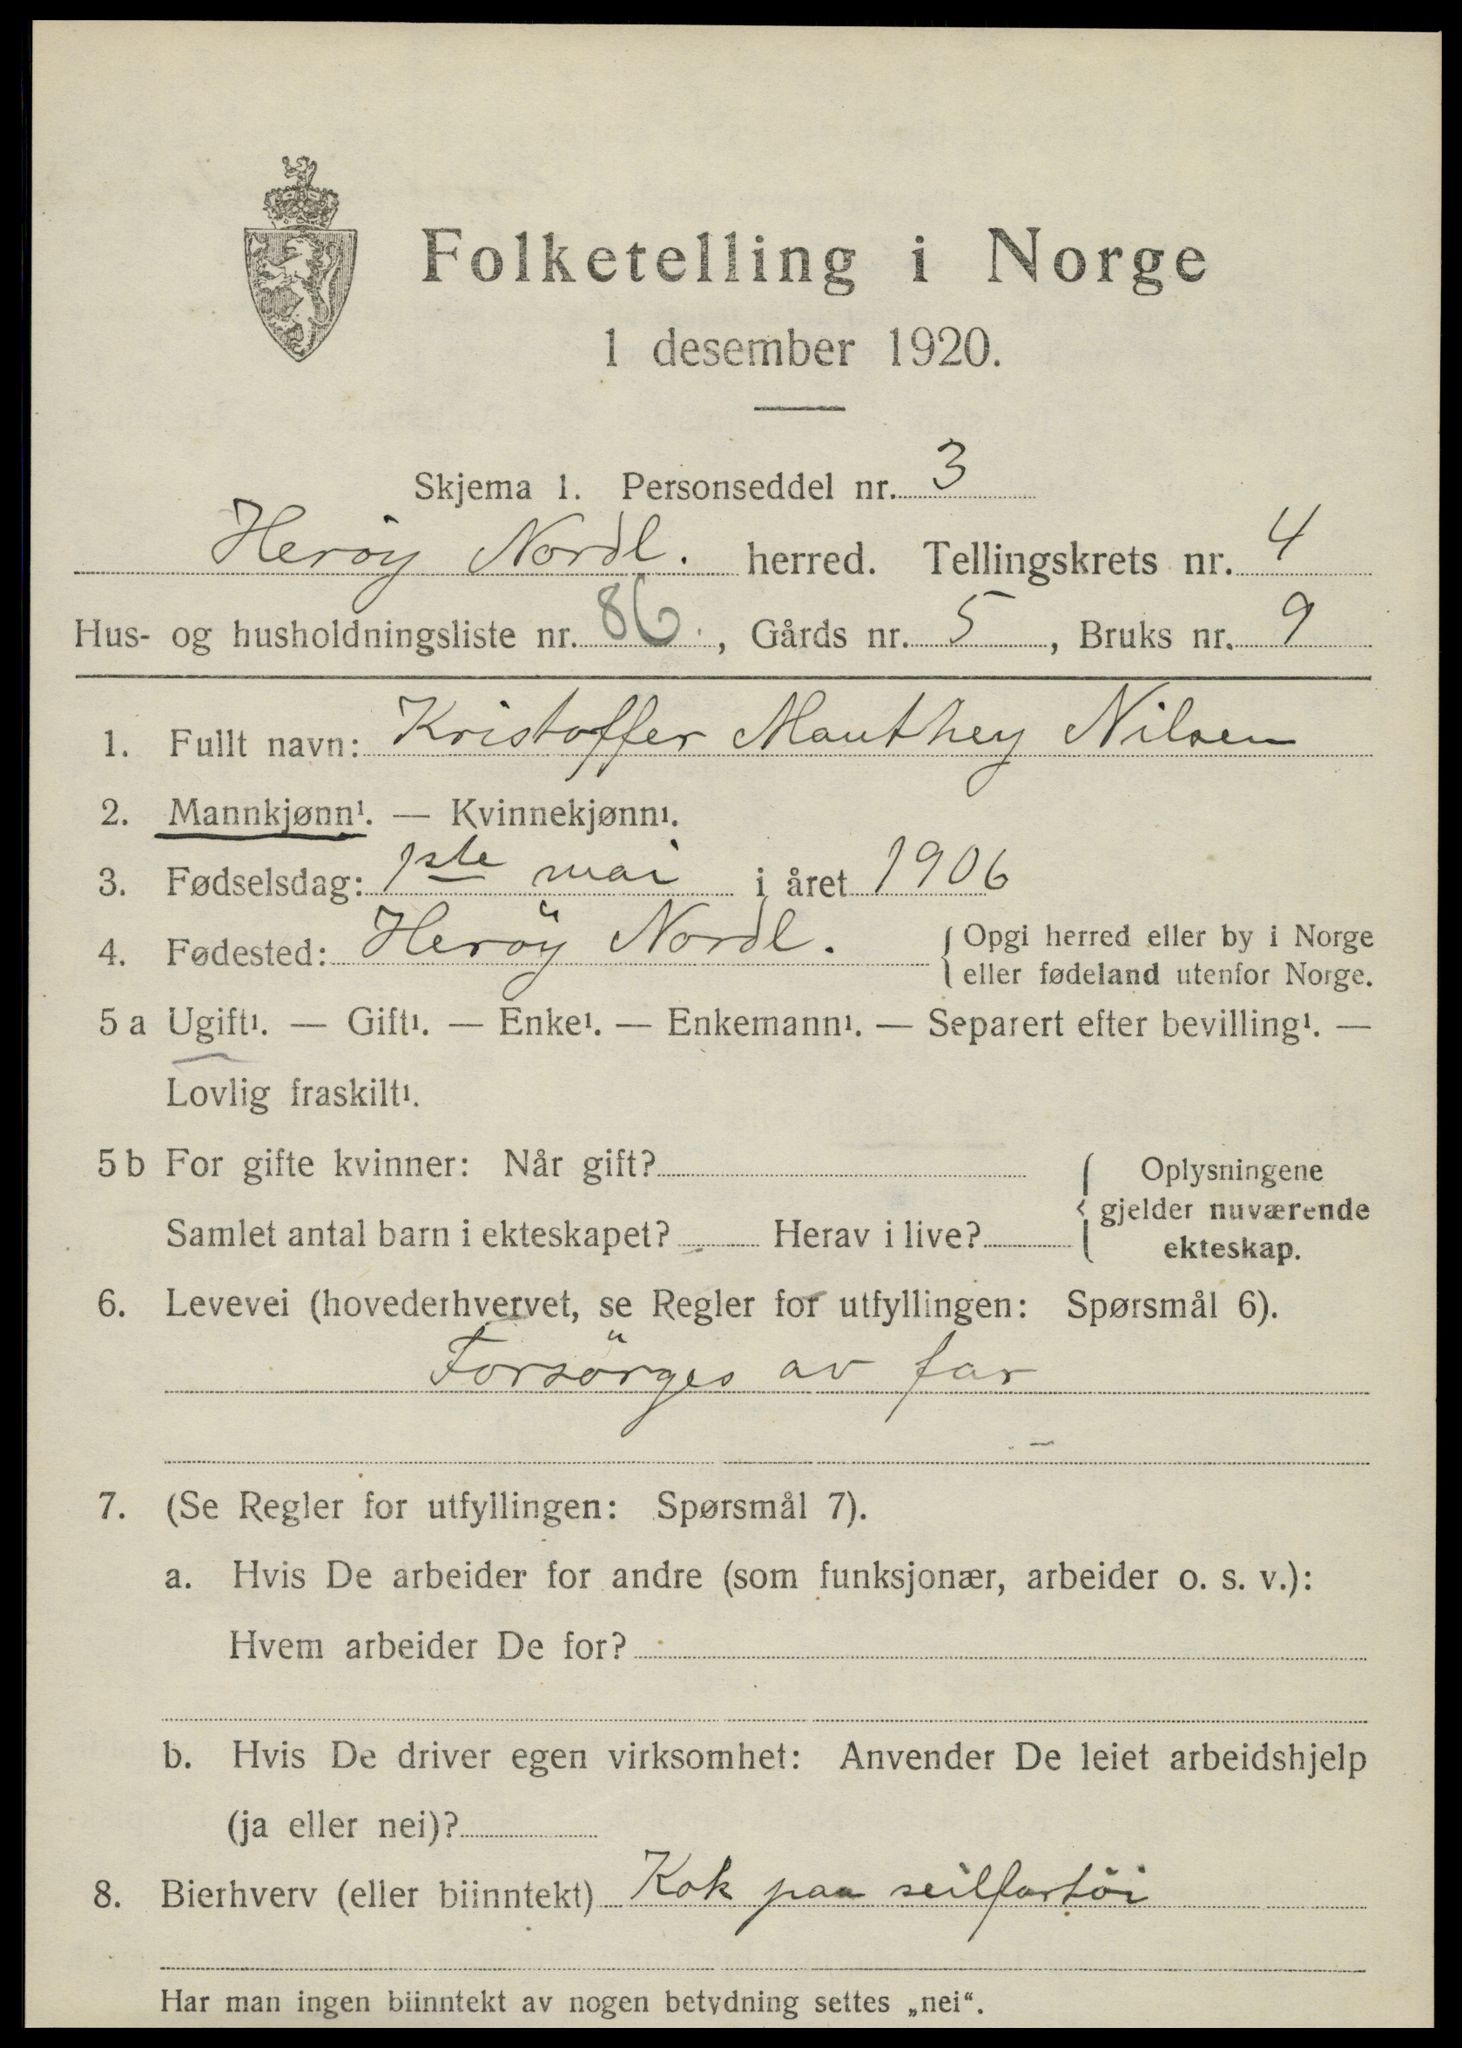 Folketelling i Norge
1 desember 1920.
Skjema 1. Personseddel nr. 3
Herøy Nordl. herred. Tellingskrets nr. 4
Hus- og husholdningsliste nr. 86, Gårds nr. 5, Bruks nr. 9
1. Fullt navn: Kristoffer Mauthey Nilsen
2. Mannkjønn¹. — Kvinnekjønn¹.
3. Fødselsdag: 1ste mai i året 1906
4. Fødested: Heröy Nordl. { Opgi herred eller by i Norge
eller fødeland utenfor Norge.
5 a Ugift¹. — Gift¹. — Enke¹. — Enkemann¹. — Separert efter bevilling¹. —
Lovlig fraskilt¹.
5 b For gifte kvinner: Når gift? { Oplysningene
gjelder nuværende
Samlet antal barn i ekteskapet? Herav i live? ekteskap.
6. Levevei (hovederhvervet, se Regler for utfyllingen: Spørsmål 6).
Forsörges av far
7. (Se Regler for utfyllingen: Spørsmål 7).
a. Hvis De arbeider for andre (som funksjonær, arbeider o. s. v.):
Hvem arbeider De for?
b. Hvis De driver egen virksomhet: Anvender De leiet arbeidshjelp
(ja eller nei)?
8. Bierhverv (eller biinntekt) Kok paa seilfartöi
Har man ingen biinntekt av nogen betydning settes „nei“.